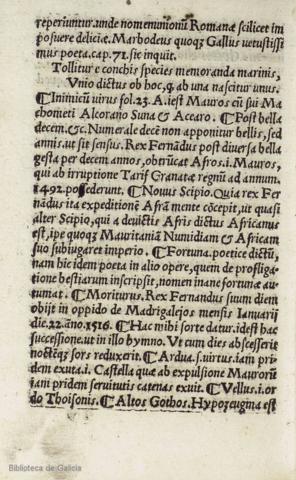 reperiũntur.unde nomen unionũ Romanæ scilicet im
posuere deliciæ. Marbodeus quoqʒ Gallus uetustissi
mus poeta.cap.71.sic inquit.
Tollitur e conchis species memoranda marinis,
Vnio dictus ob hoc, ꝗ ab una nascitur unus.
¶Inimicũ virus fol.23.A.iest Mauros cũ sui Ma
chometi Alcorano Suna & Acearo. ¶Post bella
decem.&c.Numerale decẽ non apponitur bellis,sed
annis.ut sit sensus.Rex Fernãdus post diuersa bella
gesta per decem annos,obtrũcat Afros.i.Mauros,
qui ab irruptione Tarif Granatæ regnũ ad annum.
1492.possederunt. ¶Nouus Scipio.Quia rex Fer
nãdus ita expeditionẽ Afrã mente cõcepit,ut quasi
alter Scipio, qui a deuictis Afris dictus Africanus
est,ipe quoqʒ Mauritaniã Numidiam & Africam
suo subiugaret imperio. ¶Fortuna.poetice dictũ,
nam hic idem poeta in alio opere,quem de profliga
tione bestiarum inscripsit,nomen inane fortunæ au
tumat. ¶Moriturus.Rex Fernandus suum diem
obijt in oppido de Madrigalejos mensis Ianuarij
die.22.año.1516.¶Hac mihi sorte datur.idest hac
successione.ut in illo hymno.Vt cum dies abscesserit
noctẽqʒ sors reduxerit.¶Ardua.s.virtus.iam pri
dem exuta.i. Castella quæ ab expulsione Maurorũ
iani pridem seruitutis catenas exuit. ¶Vellus.i.or
do Thoisonis. ¶Altos Gothos.Hypozeugma est
Biblioteca de Galicia